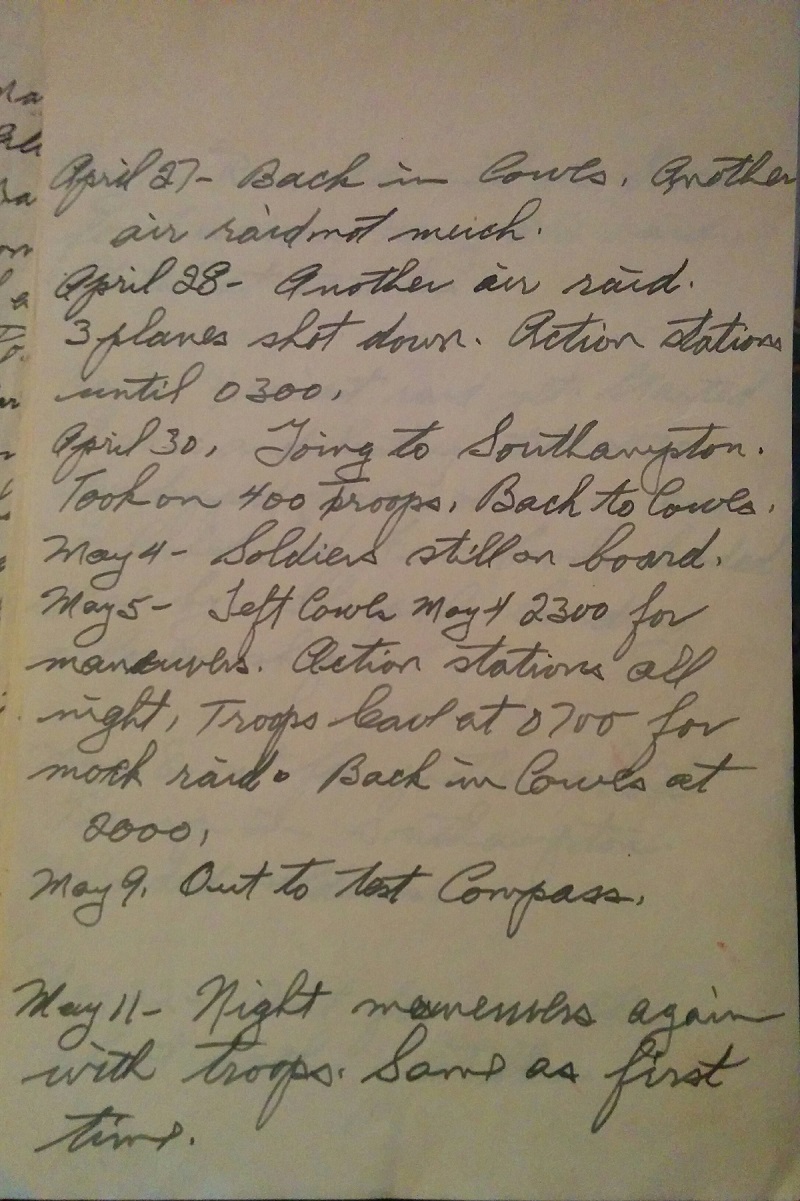 April 27- Back in Cowls. Another
air raid not much.
April 28- Another air raid.
3 planes shot down. Action stations
until 0300.
April 30. Going to Southampton.
Took on 400 troops. Back to Cowls.
May 4- Soldiers still on board.
May 5- Left Cowls May 4 2300 for
maneuvers. Action stations all
night. Troops leave at 0700 for
mock raid. Back in Cowls at
2000.
May 9. Out to test Compass.
May 11- Night maneuvers again
with troops. Same as first
time.